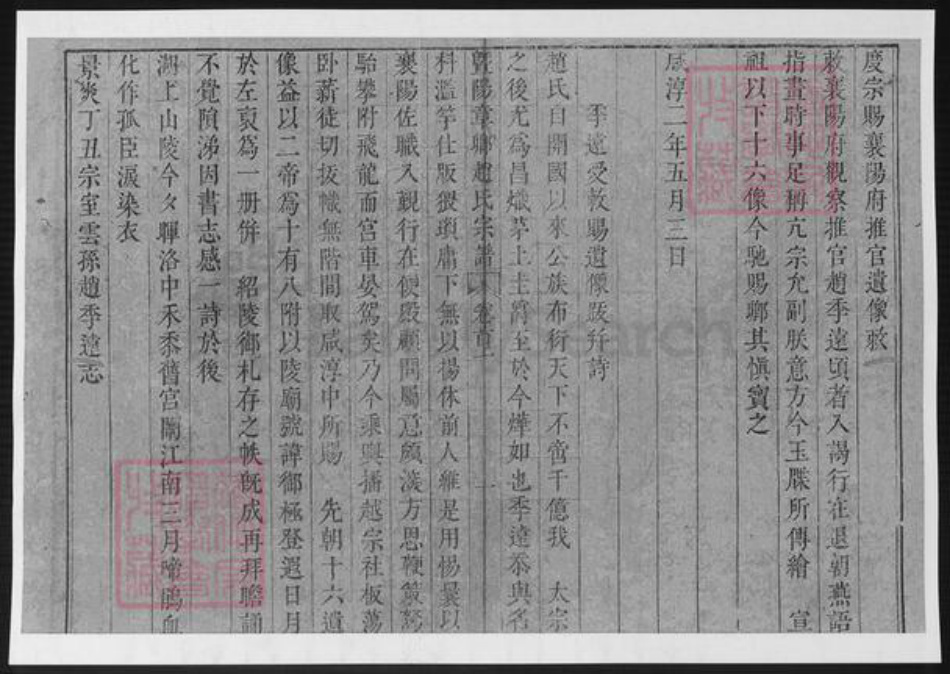 度宗賜襄陽府推官遺像敕
敕襄陽府觀察推官趙季遠頃者入謁行在退朝燕語
指畫時事足稱亢宗允副朕意方今玉牒所傳繪 宣
祖以下十六像今馳賜鄉其慎寶之
咸淳二年五月三日
季遠受敕賜遺像跋幷詩
趙氏自開國以來公族布衍天下不啻千億我 太宗
之後尤為昌熾茅土圭爵至於今燁如也季遠忝與名
暨陽章鄉趙氏宗譜 卷首上 一
科濫竽仕版猥瑣庸下無以揚休前人維是用惕曩以
襄陽佐職入覲行在便殿顧問屬意頗渥方思鞭策駑
駘攀附飛龍而宮車晏駕矣乃今乘輿播越宗社板蕩
卧薪徒切拔幟無階間取咸淳中所賜 先朝十六遺
像益以二帝為十有八附以陵廟號諱御極登遐日月
於左裒為一册併 紹陵御札存之帙旣成再拜瞻誦
不覺隕涕因書志感一詩於後
湖上山陵今夕輝洛中禾黍舊宮闈江南三月啼鵑血
化作孤臣淚染衣
景炎丁丑宗室雲孫趙季遠志